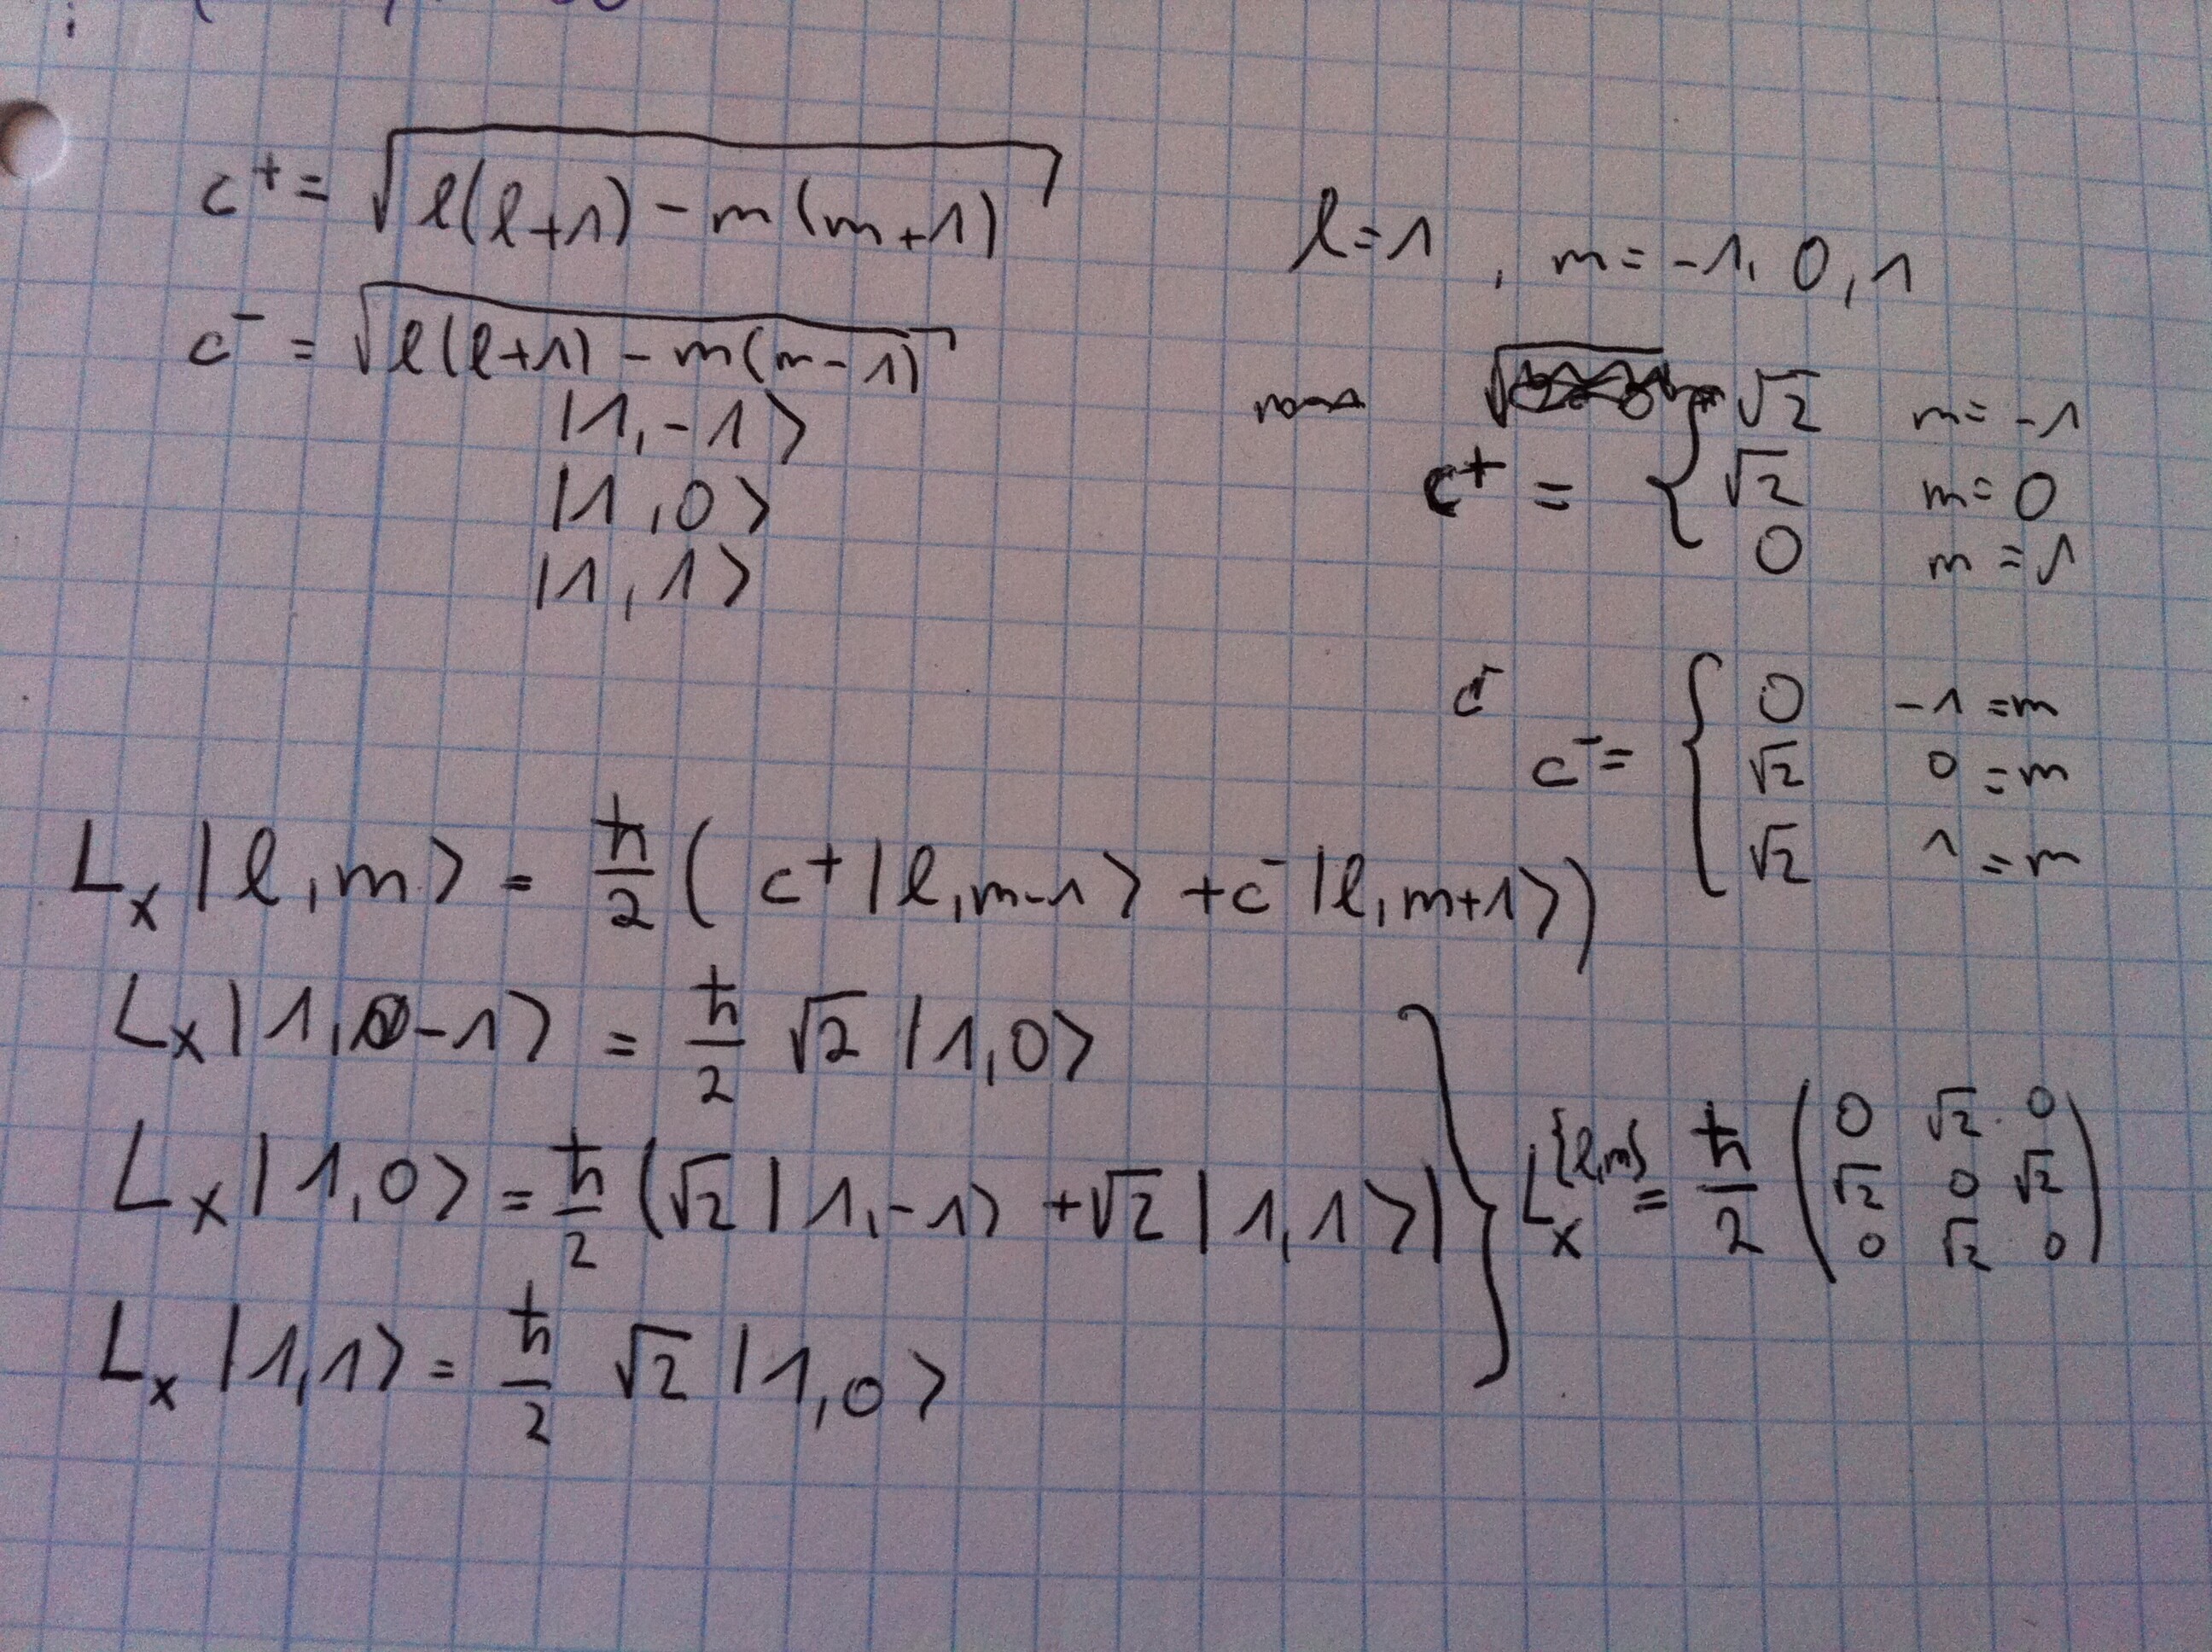 c⁺ = √(l(l+1) − m(m+1))
c⁻ = √(l(l+1) − m(m−1))
|1,−1⟩
|1,0⟩
|1,1⟩
l=1, m=−1,0,1
√2 m=−1
c⁺ = { √2 m=0
0 m=1
c⁻
0 −1=m
c⁻= { √2 0=m
√2 1=m
Lₓ|l,m⟩ = ħ/2 ( c⁺|l,m−1⟩ + c⁻|l,m+1⟩)
Lₓ|1,−1⟩ = ħ/2 √2 |1,0⟩
Lₓ|1,0⟩ = ħ/2 (√2|1,−1⟩ + √2|1,1⟩)
Lₓ|1,1⟩ = ħ/2 √2 |1,0⟩
} Lₓ^{l,m} = ħ/2
( 0 √2 0
√2 0 √2
0 √2 0 )